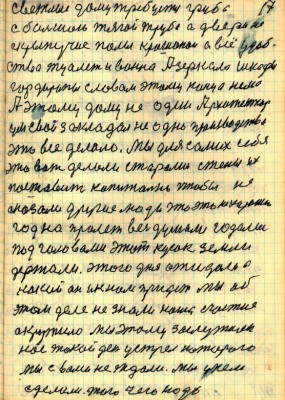 светлые дому требуты грубо 17
с большой тягой труба а двери не
скрыпучие полы крашоны а всё удоб-
ства туалет и ванна Азеркало шкафы
гардиробы словам этому конца нема
А этому дому не один Архитектор
ум свой закладал не одно производства
это всё делало. Мы для самих себя
это вот делали старали стены их
поставит капитально чтобы не
сказали другие люды што это
год на пролет вси думали годами
под головами этот кусок земли
держали. этого дня ожидали
какой он к нам придет мы об
этом деле не знали наша счастия
окружило мы этому заслужили
нас такой ден устрел которого
мы с вами не ждали. мы умели
сделали этого чего люды